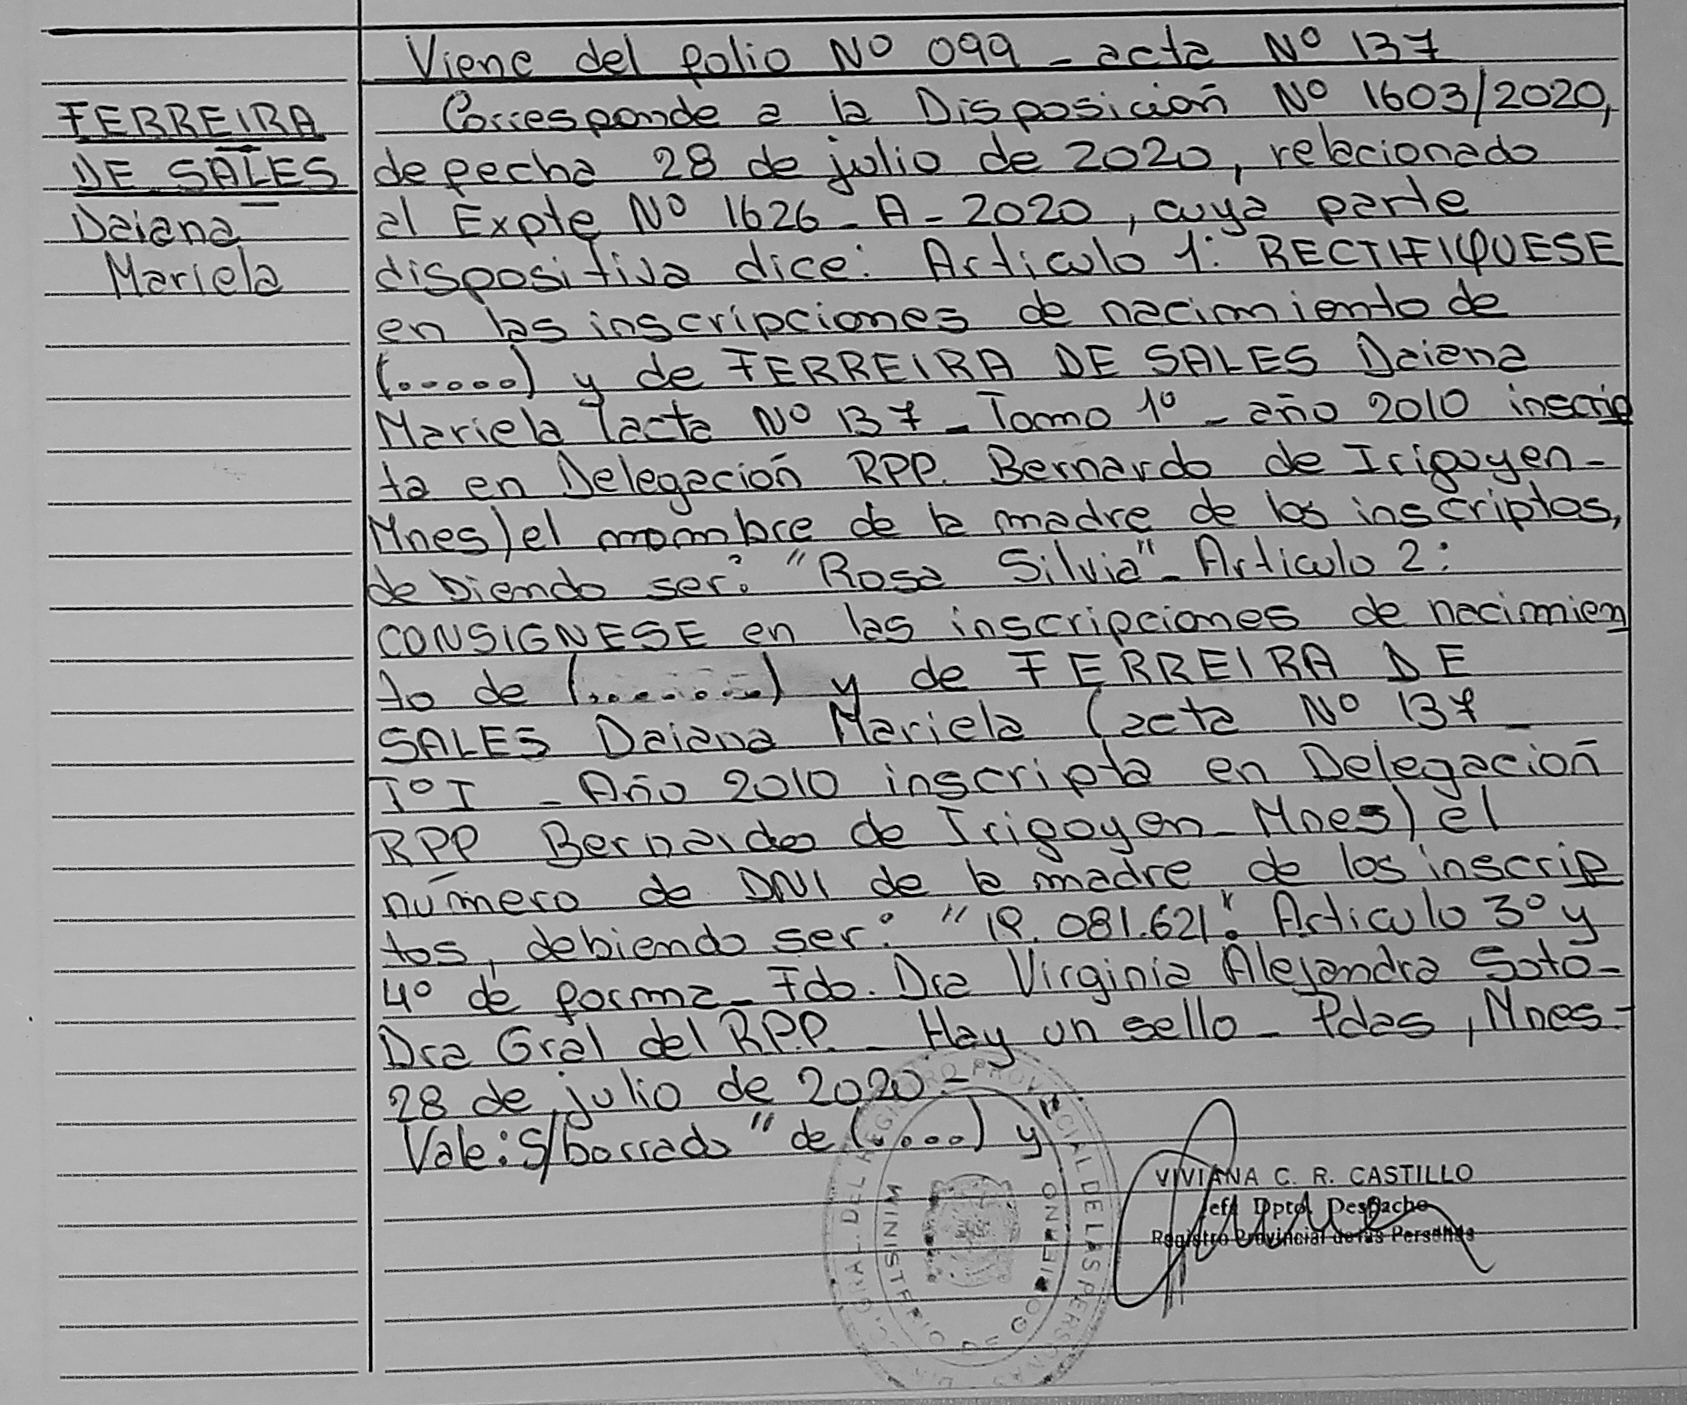 Viene del folio Nº 099 - acta Nº 137
FERREIRA
DE SALES
Daiana
Mariela
Corresponde a la Disposición Nº 1603/2020,
de fecha 28 de julio de 2020, relacionado
al Expte Nº 1626 - A - 2020, cuya parte
dispositiva dice: Articulo 1: RECTIFIQUESE
en las inscripciones de nacimiento de
(.....) y de FERREIRA DE SALES Daiana
Mariela (acta Nº 137 - Tomo 1º - año 2010 inscrip
ta en Delegación RPP. Bernardo de Irigoyen -
Mnes) el nombre de la madre de los inscriptos,
debiendo ser: "Rosa Silvia" - Articulo 2:
CONSIGNESE en las inscripciones de nacimien
to de (.......) y de FERREIRA DE
SALES Daiana Mariela (acta Nº 137 -
Tº I - Año 2010 inscripta en Delegación
RPP Bernardo de Irigoyen - Mnes) el
número de DNI de la madre de los inscrip
tos, debiendo ser: ". Articulo 3º y
4º de forma - Fdo. Dra Virginia Alejandra Soto -
Dra Gral del R.P.P. - Hay un sello - Pdas, Mnes -
28 de julio de 2020 -
Vale: S/borrado "de (.....) y"
VIVIANA C. R. CASTILLO
Jefa Dpto. Despacho
Registro Provincial de las Personas
GRAL. DEL REGISTRO PROVINCIAL DE LAS PERSONAS
MINISTERIO DE GOBIERNO